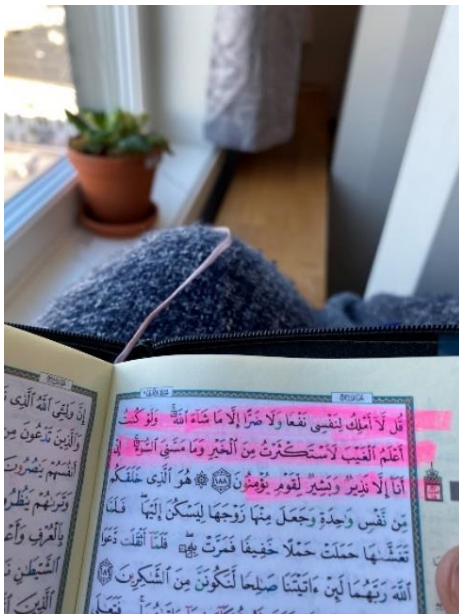 قُل لَّآ أَمْلِكُ لِنَفْسِى نَفْعًا وَلَا ضَرًّا إِلَّا مَا شَآءَ ٱللَّهُ ۚ وَلَوْ كُنتُ
أَعْلَمُ ٱلْغَيْبَ لَٱسْتَكْثَرْتُ مِنَ ٱلْخَيْرِ وَمَا مَسَّنِىَ ٱلسُّوٓءُ ۚ إِنْ
أَنَا۠ إِلَّا نَذِيرٌ وَبَشِيرٌ لِّقَوْمٍ يُؤْمِنُونَ ١٨٨ ۞ هُوَ ٱلَّذِى خَلَقَكُم
مِّن نَّفْسٍ وَٰحِدَةٍ وَجَعَلَ مِنْهَا زَوْجَهَا لِيَسْكُنَ إِلَيْهَا ۖ فَلَمَّا
تَغَشَّىٰهَا حَمَلَتْ حَمْلًا خَفِيفًا فَمَرَّتْ بِهِۦ ۖ فَلَمَّآ أَثْقَلَت دَّعَوَا
ٱللَّهَ رَبَّهُمَا لَئِنْ ءَاتَيْتَنَا صَٰلِحًا لَّنَكُونَنَّ مِنَ ٱلشَّٰكِرِينَ ١٨٩
إِنَّ وَلِـِّۧىَ ٱللَّهُ ٱلَّذِى
وَٱلَّذِينَ تَدْعُونَ مِن
أَنفُسَهُمْ يَنصُرُونَ
وَتَرَىٰهُمْ يَنظُرُ
بِٱلْعُرْفِ وَأَعْ
ٱلشَّيْطَٰنِ
ٱلَّذِينَ